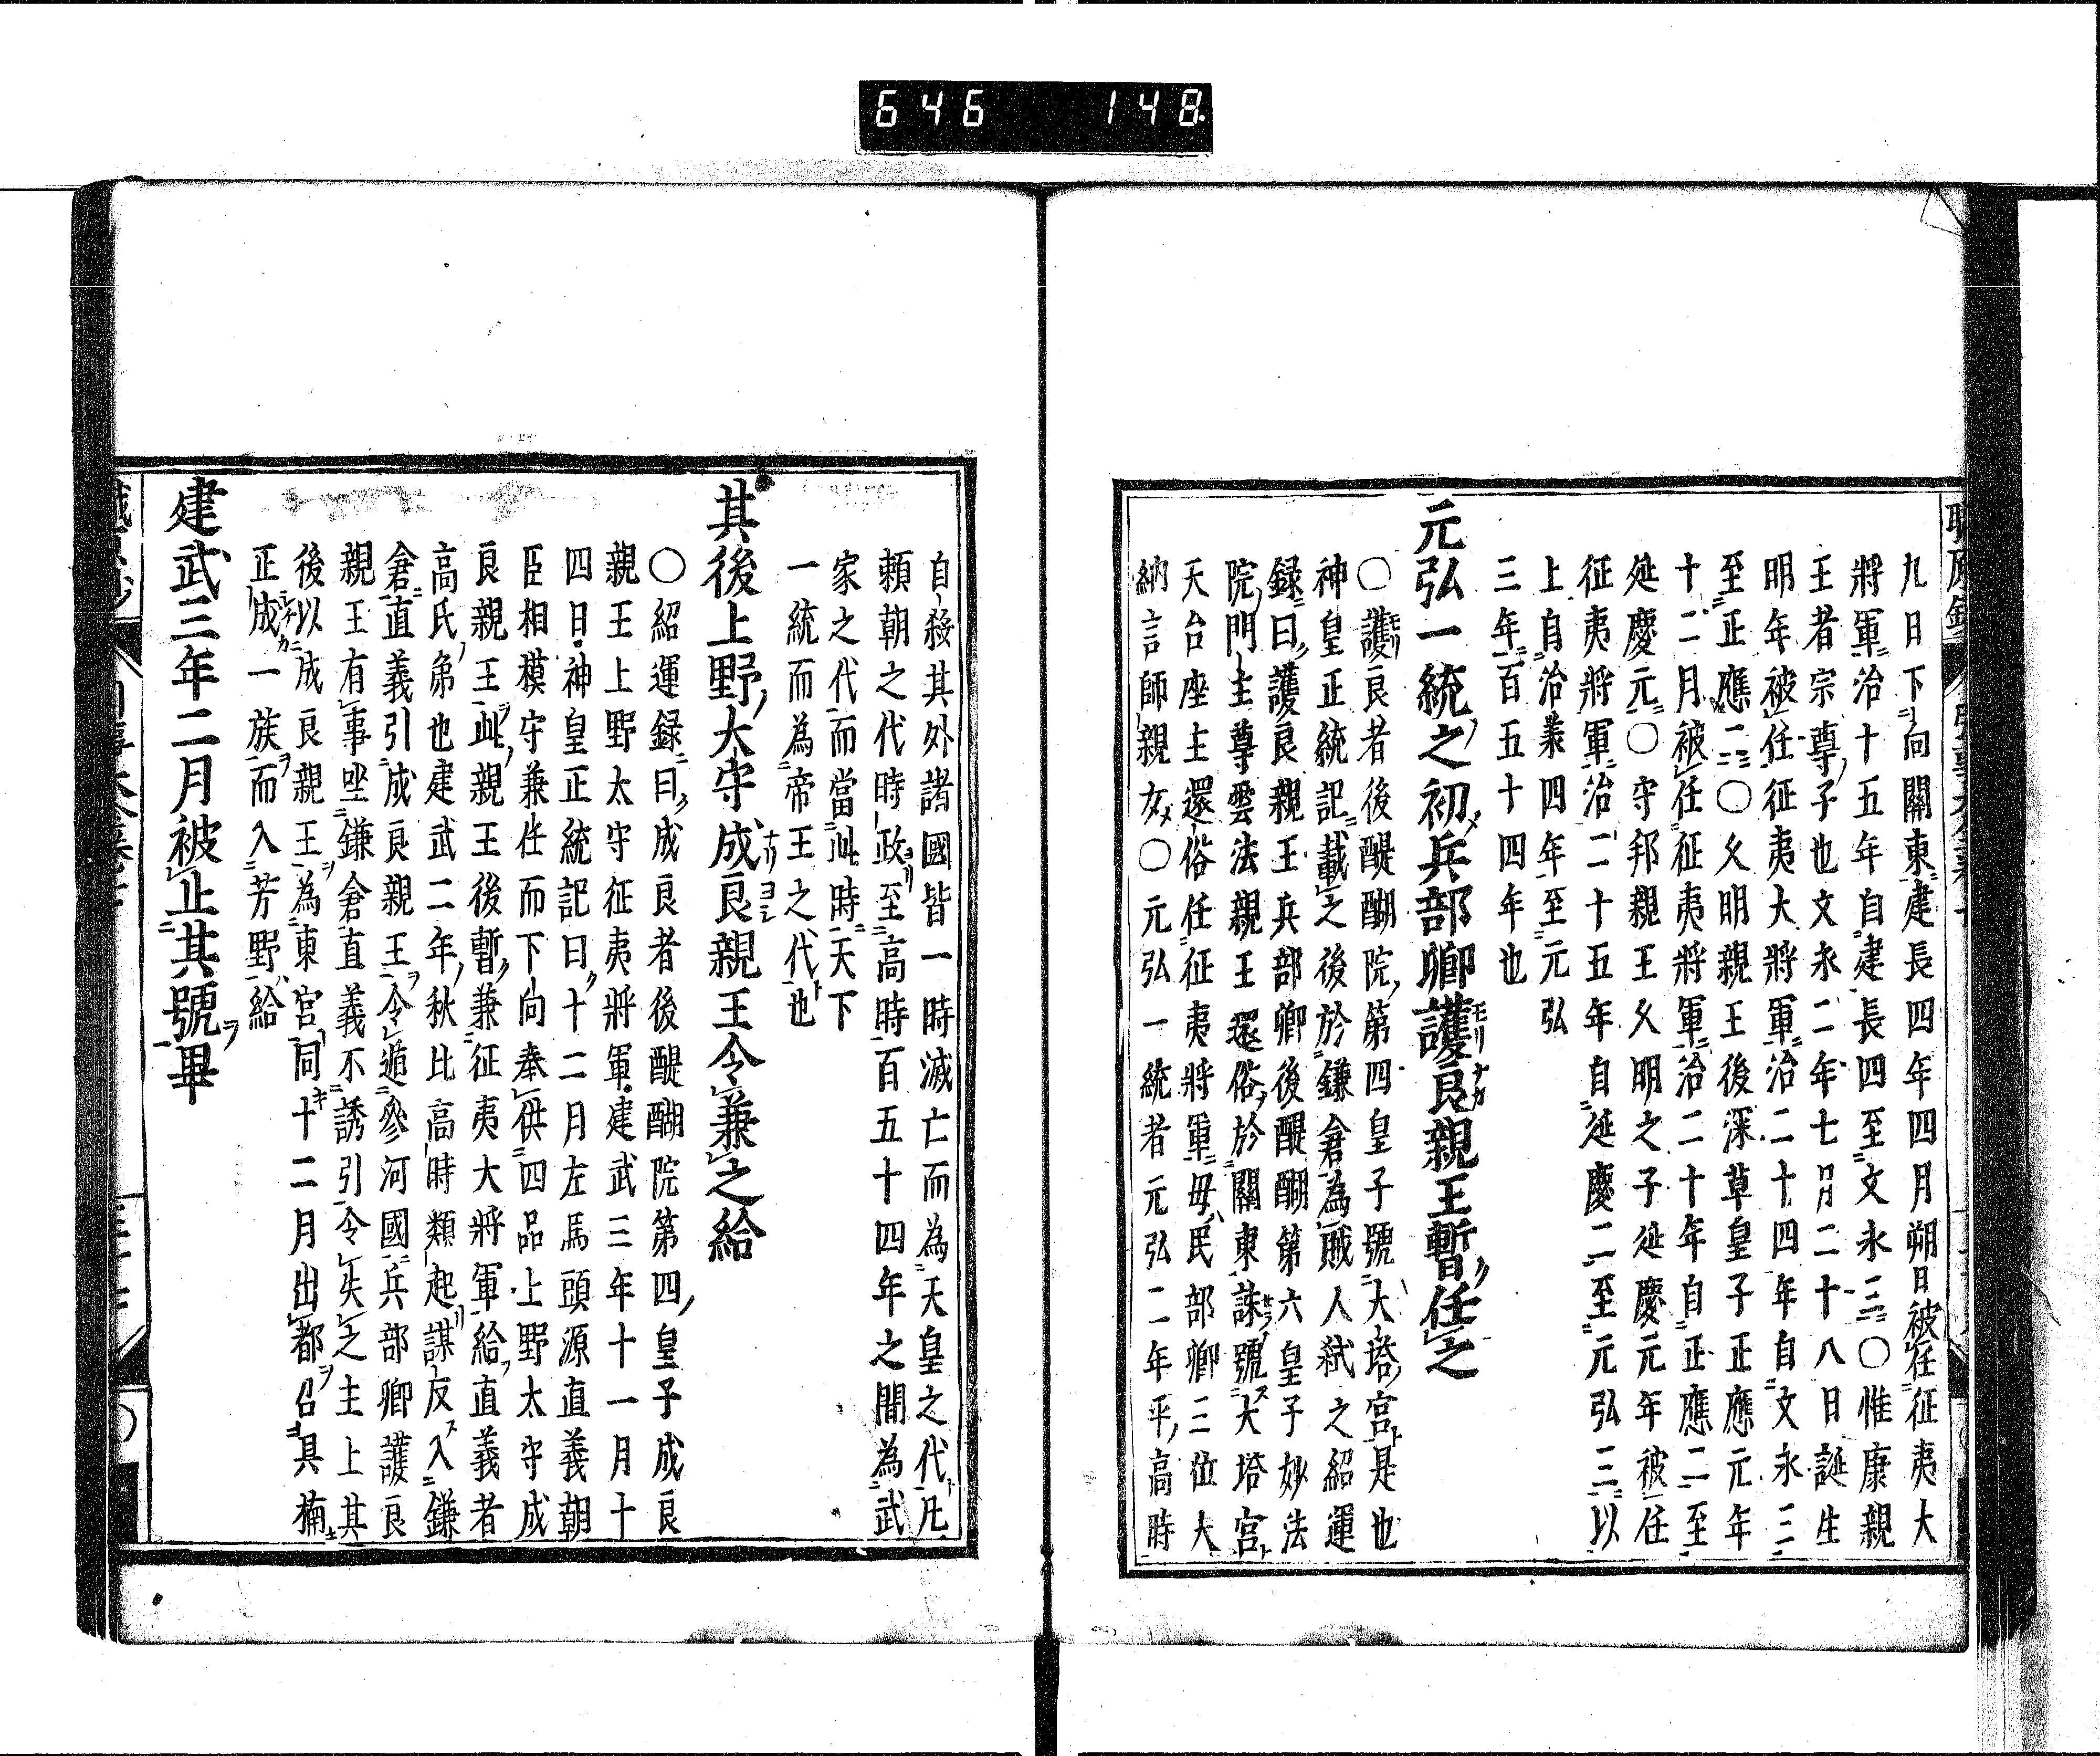 646 148
九日下向關東建長四年四月朔日被任征夷大
將軍治十五年自建長四至文永三〇惟康親
王者宗尊子也文永二年七月二十八日誕生
明年被任征夷大將軍治二十四年自文永三
至正應二〇久明親王後深草皇子正應元年
十二月被任征夷將軍治二十年自正應二至
延慶元〇守邦親王久明之子延慶元年被任
征夷將軍治二十五年自延慶二至元弘三以
上自治兼四年至元弘
三年百五十四年也
元弘一統之初兵部卿護良親王暫任之
〇護良者後醍醐院第四皇子號大塔宮是也
神皇正統記載之後於鎌倉為賊人弒之紹運
録曰護良親王兵部卿後醍醐第六皇子妙法
院門主尊雲法親王還俗於關東誅號大塔宮
天台座主還俗任征夷將軍毋民部卿三位大
納言師親女〇元弘一統者元弘二年平高時
自殺其外諸國皆一時滅亡而為天皇之代凡
頼朝之代時政至高時百五十四年之間為武
家之代而當此時天下
一統而為帝王之代也
其後上野大守成良親王令兼之給
〇紹運録曰成良者後醍醐院第四皇子成良
親王上野太守征夷將軍建武三年十一月十
四日神皇正統記曰十二月左馬頭源直義朝
臣相模守兼任而下向奉供四品上野太守成
良親王此親王後暫兼征夷大將軍給直義者
高氏弟也建武二年秋比高時類起謀反入鎌
倉直義引成良親王令遁參河國兵部卿護良
親王有事坐鎌倉直義不誘引令失之主上其
後以成良親王為東宮同十二月出都召具楠
正成一族而入芳野給
建武三年二月被止其號畢